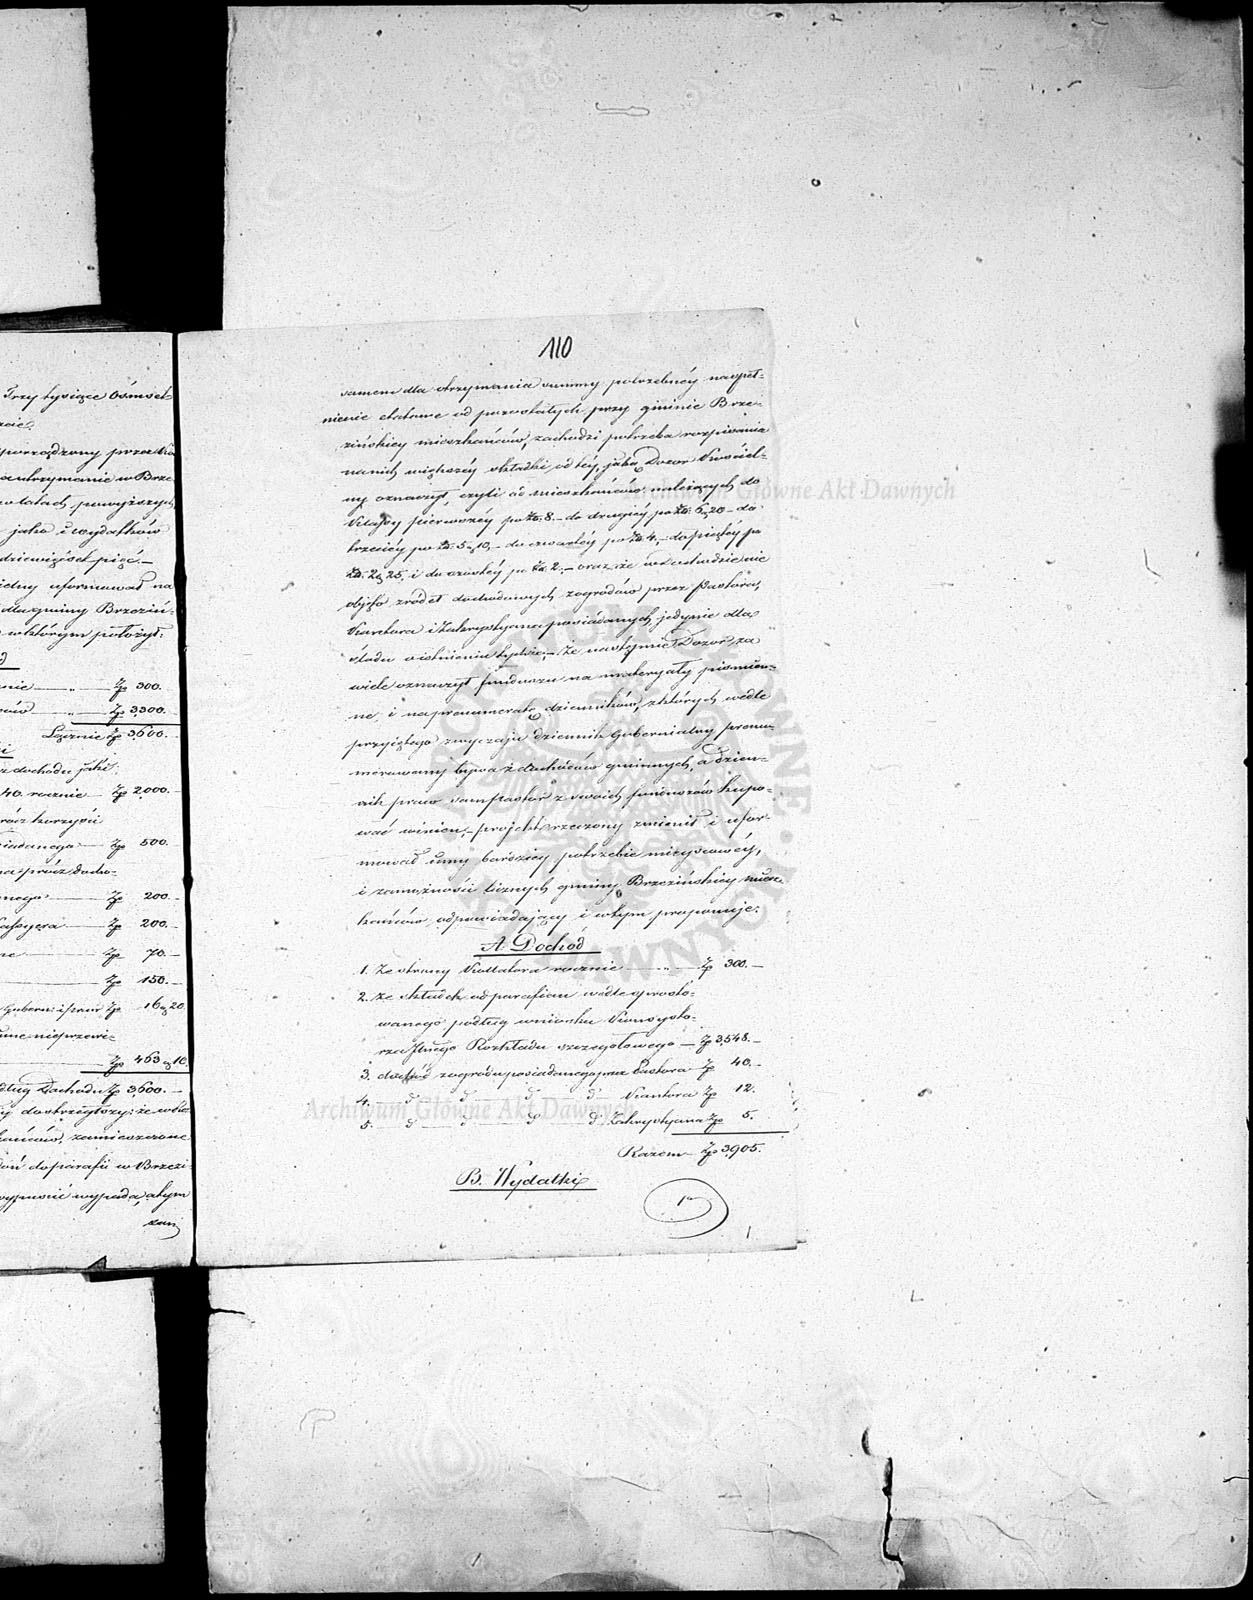 Trzy tysiące Ośmset
porządzony przez
utrzymanie w Brze
w latach powyższych
jako i wydatków
dziewięćset pięć.—
uformował na
dla gminy Brzeziń-
w którym położył:
Zp 300.
Zp 3,300.
Łącznie Zp 3,600.
z dochodu jaki
40. rocznie — Zp 2,000.
prócz korzyści
Zp 500.
prócz docho-
Zp 200.—
Kassyera — Zp 200.—
Zp 70.—
Zp 150.—
Zp 16 g 20
nieprzewi-
Zp 463 g 10.
Dochodu Zp 3,600.—
dostrzegłszy: że
zamieszczone
do parafii w Brzezi-
wypada, a tym
sam
110
samem dla otrzymania summy potrzebnéy na opeł-
nienie etatowe od pozostałych przy gminie Brze-
zińskiey mieszkańców, zachodzi potrzeba rozpisania
na nich większéy składki od téy, jaką Dozor Kościel-
ny oznaczył, czyli od mieszkańców należących do
Klassy pierwszéy po Zp. 8.— do drugiéy po Zp. 6 g 20 — do
trzeciéy po Zp. 5 g 10.— do czwartéy po Zp. 4.— do piątéy po
Zp. 2 g 25. i do szóstéy po Zp. 2.— oraz że w dochodzie nie
objęto źródeł dochodowych zogrodów przez Pastora,
Kantora i Zakrystyana posiadanych, jedynie dla
śladu o istnieniu tychże;— że następnie Dozor, za
wiele oznaczył funduszu na materyały piśmien-
ne, i na prenumeratę dzienników, z których wedle
przyjętego zwyczaju dziennik Gubernialny prenu-
merowany bywa z dochodów gminnych, a Dzien-
nik praw sam Pastor z swoich funduszów kupo-
wać winien,— projekt rzeczony zmienił i ufor-
mował inny bardziey potrzebie mieyscowéy,
i zamożności licznych gminy Brzezińskiey miesz-
kańców odpowiadający i w tym proponuje:
A. Dochód
1. Ze strony Kollatora rocznie — „ — Zp 300.—
2. Ze składek od parafian wedle sprosto-
wanego podług wniosku Konsysto-
rza Jlnego Rozkładu szczegółowego — Zp 3,548.—
3. dochód zogrodu posiadanego przez Pastora Zp 40.—
4. d d d d Kantora Zp 12.
5. d d d d Zakrystyana Zp 5.
Razem Zp 3,905.
B. Wydatki
Archiwum Główne Akt Dawnych
Archiwum Główne Akt Dawnych